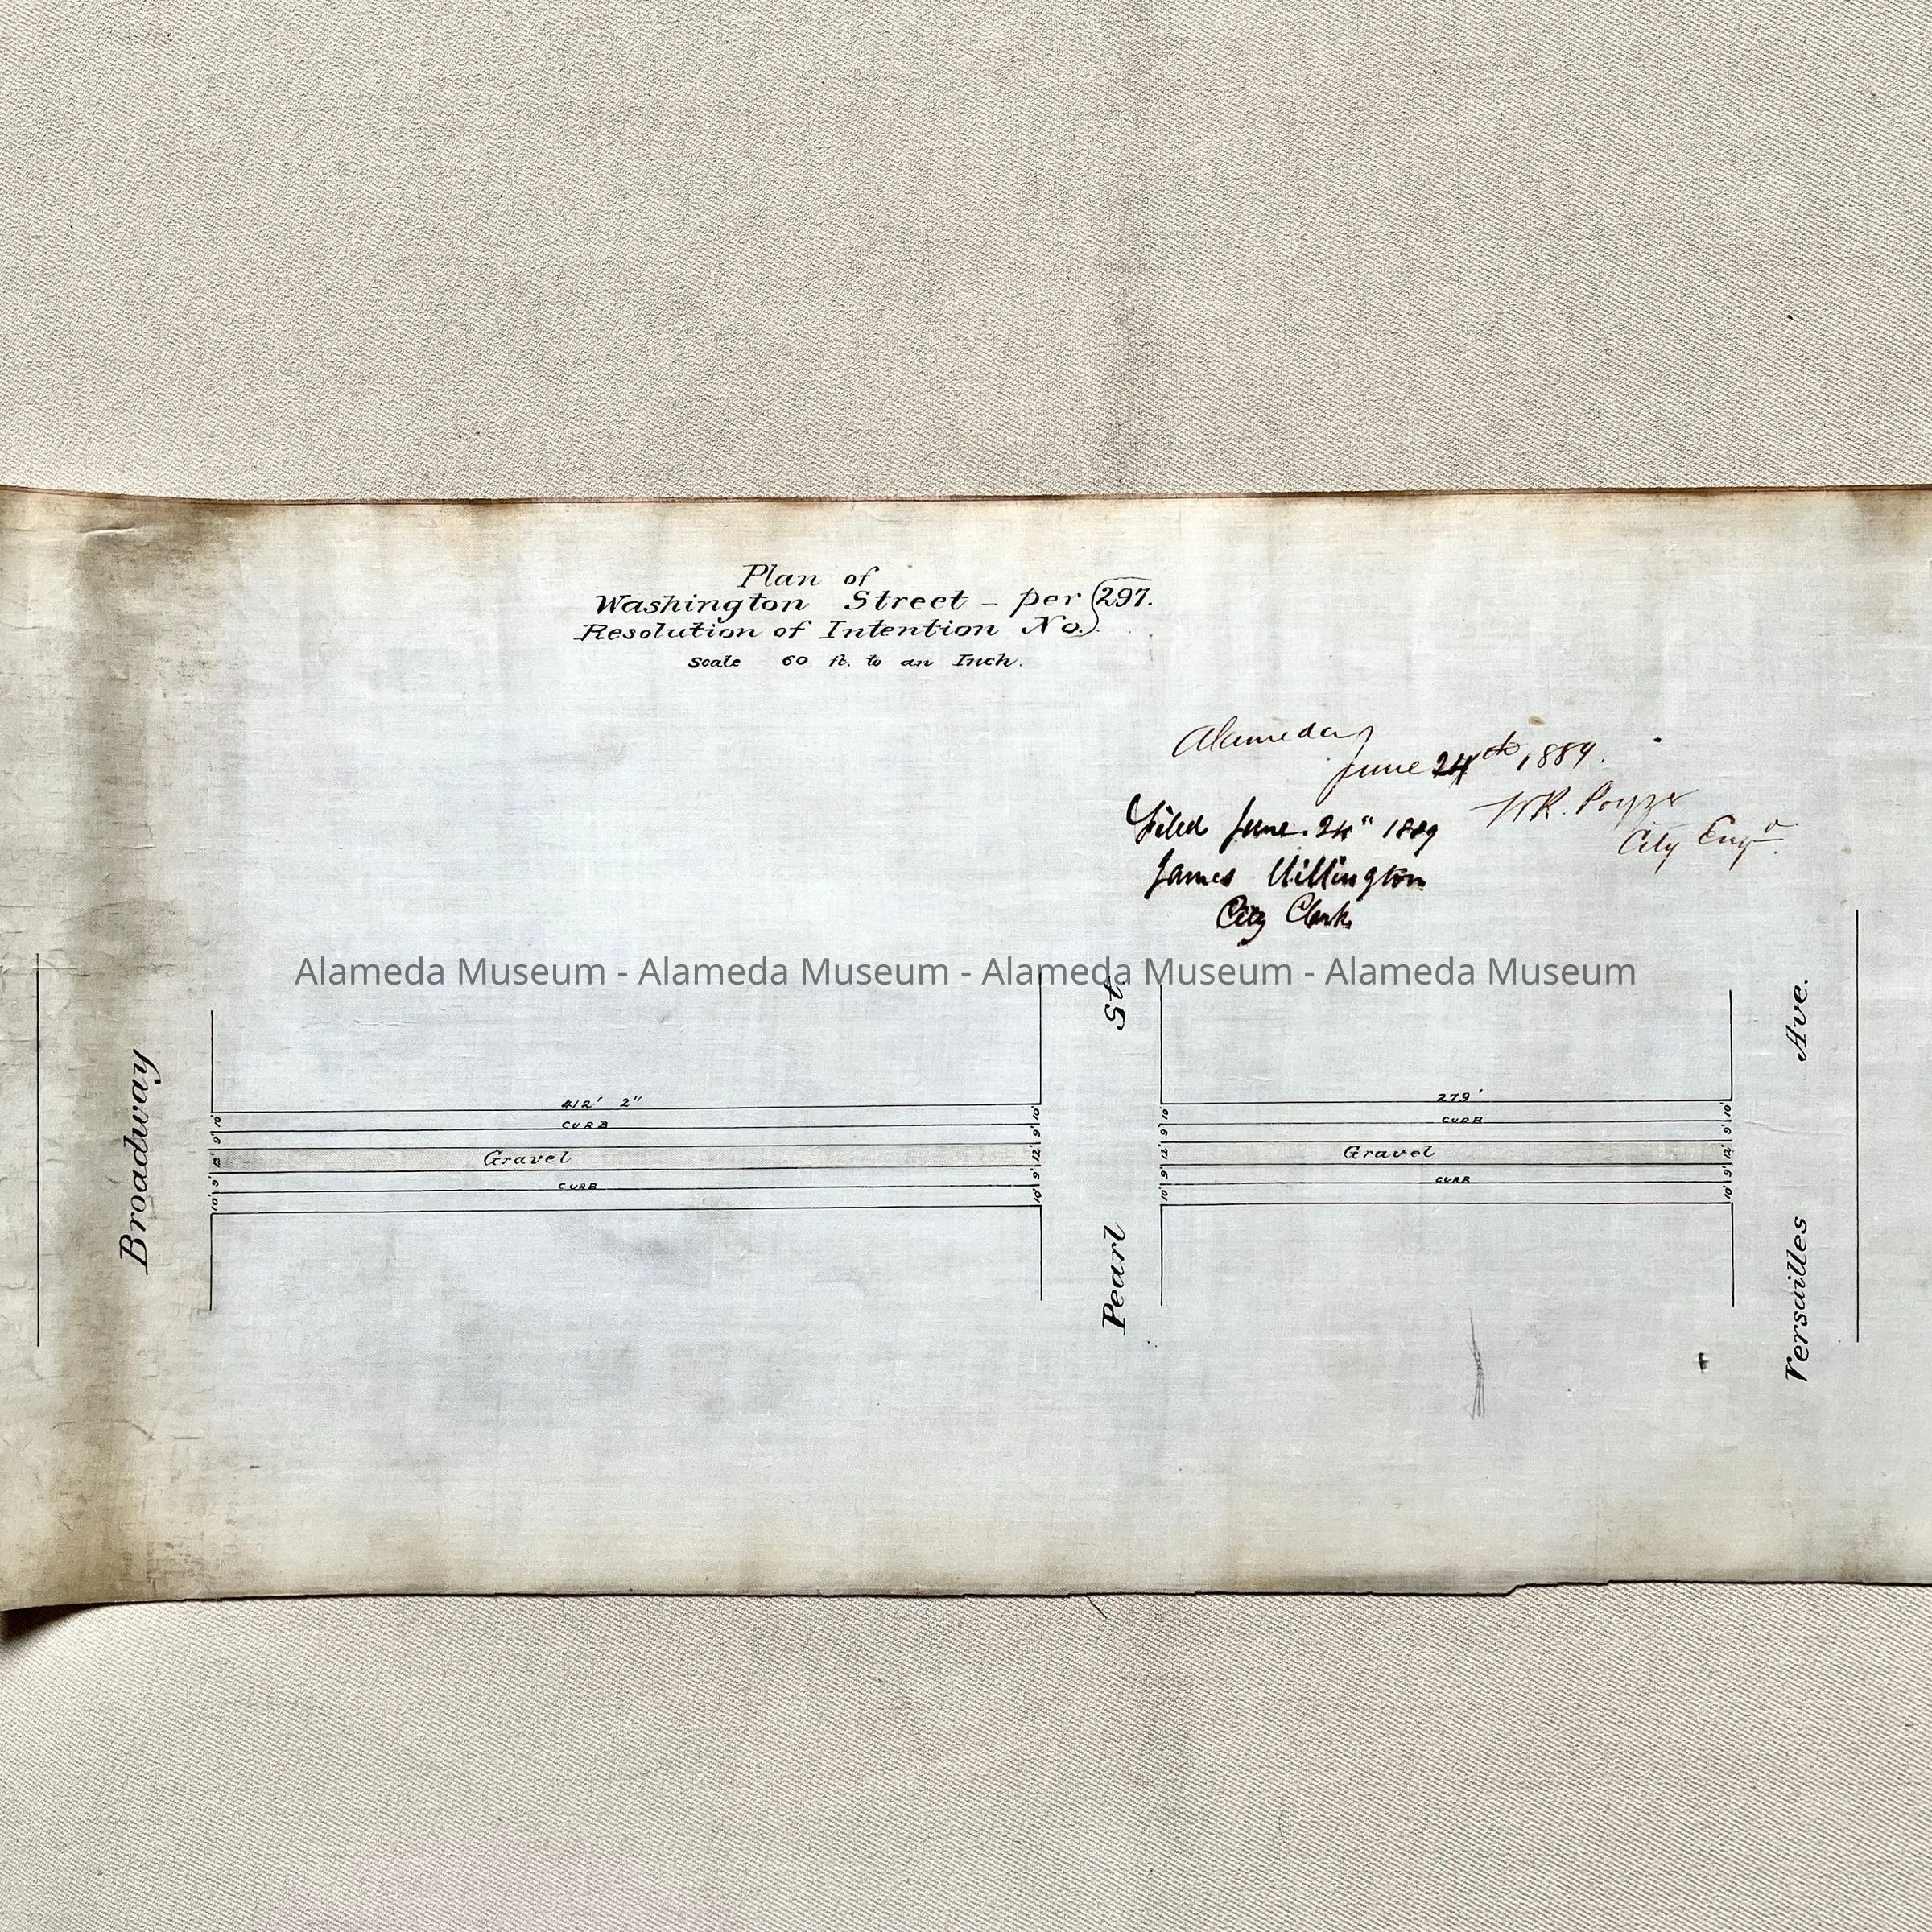 Plan of
Washington Street - per 297.
Resolution of Intention No.
Scale 60 ft. to an Inch.
Alameda
June 24th, 1889.
W.R. Poyzer
City Engr.
Filed June. 24" 1889
James Millington
City Clerk
Alameda Museum - Alameda Museum - Alameda Museum - Alameda Museum
Broadway
Pearl St.
Versailles Ave.
412' 2"
CURB
Gravel
CURB
10' 9' 12' 9' 10'
10' 9' 12' 9' 10'
279'
CURB
Gravel
CURB
10' 9' 12' 9' 10'
10' 9' 12' 9' 10'